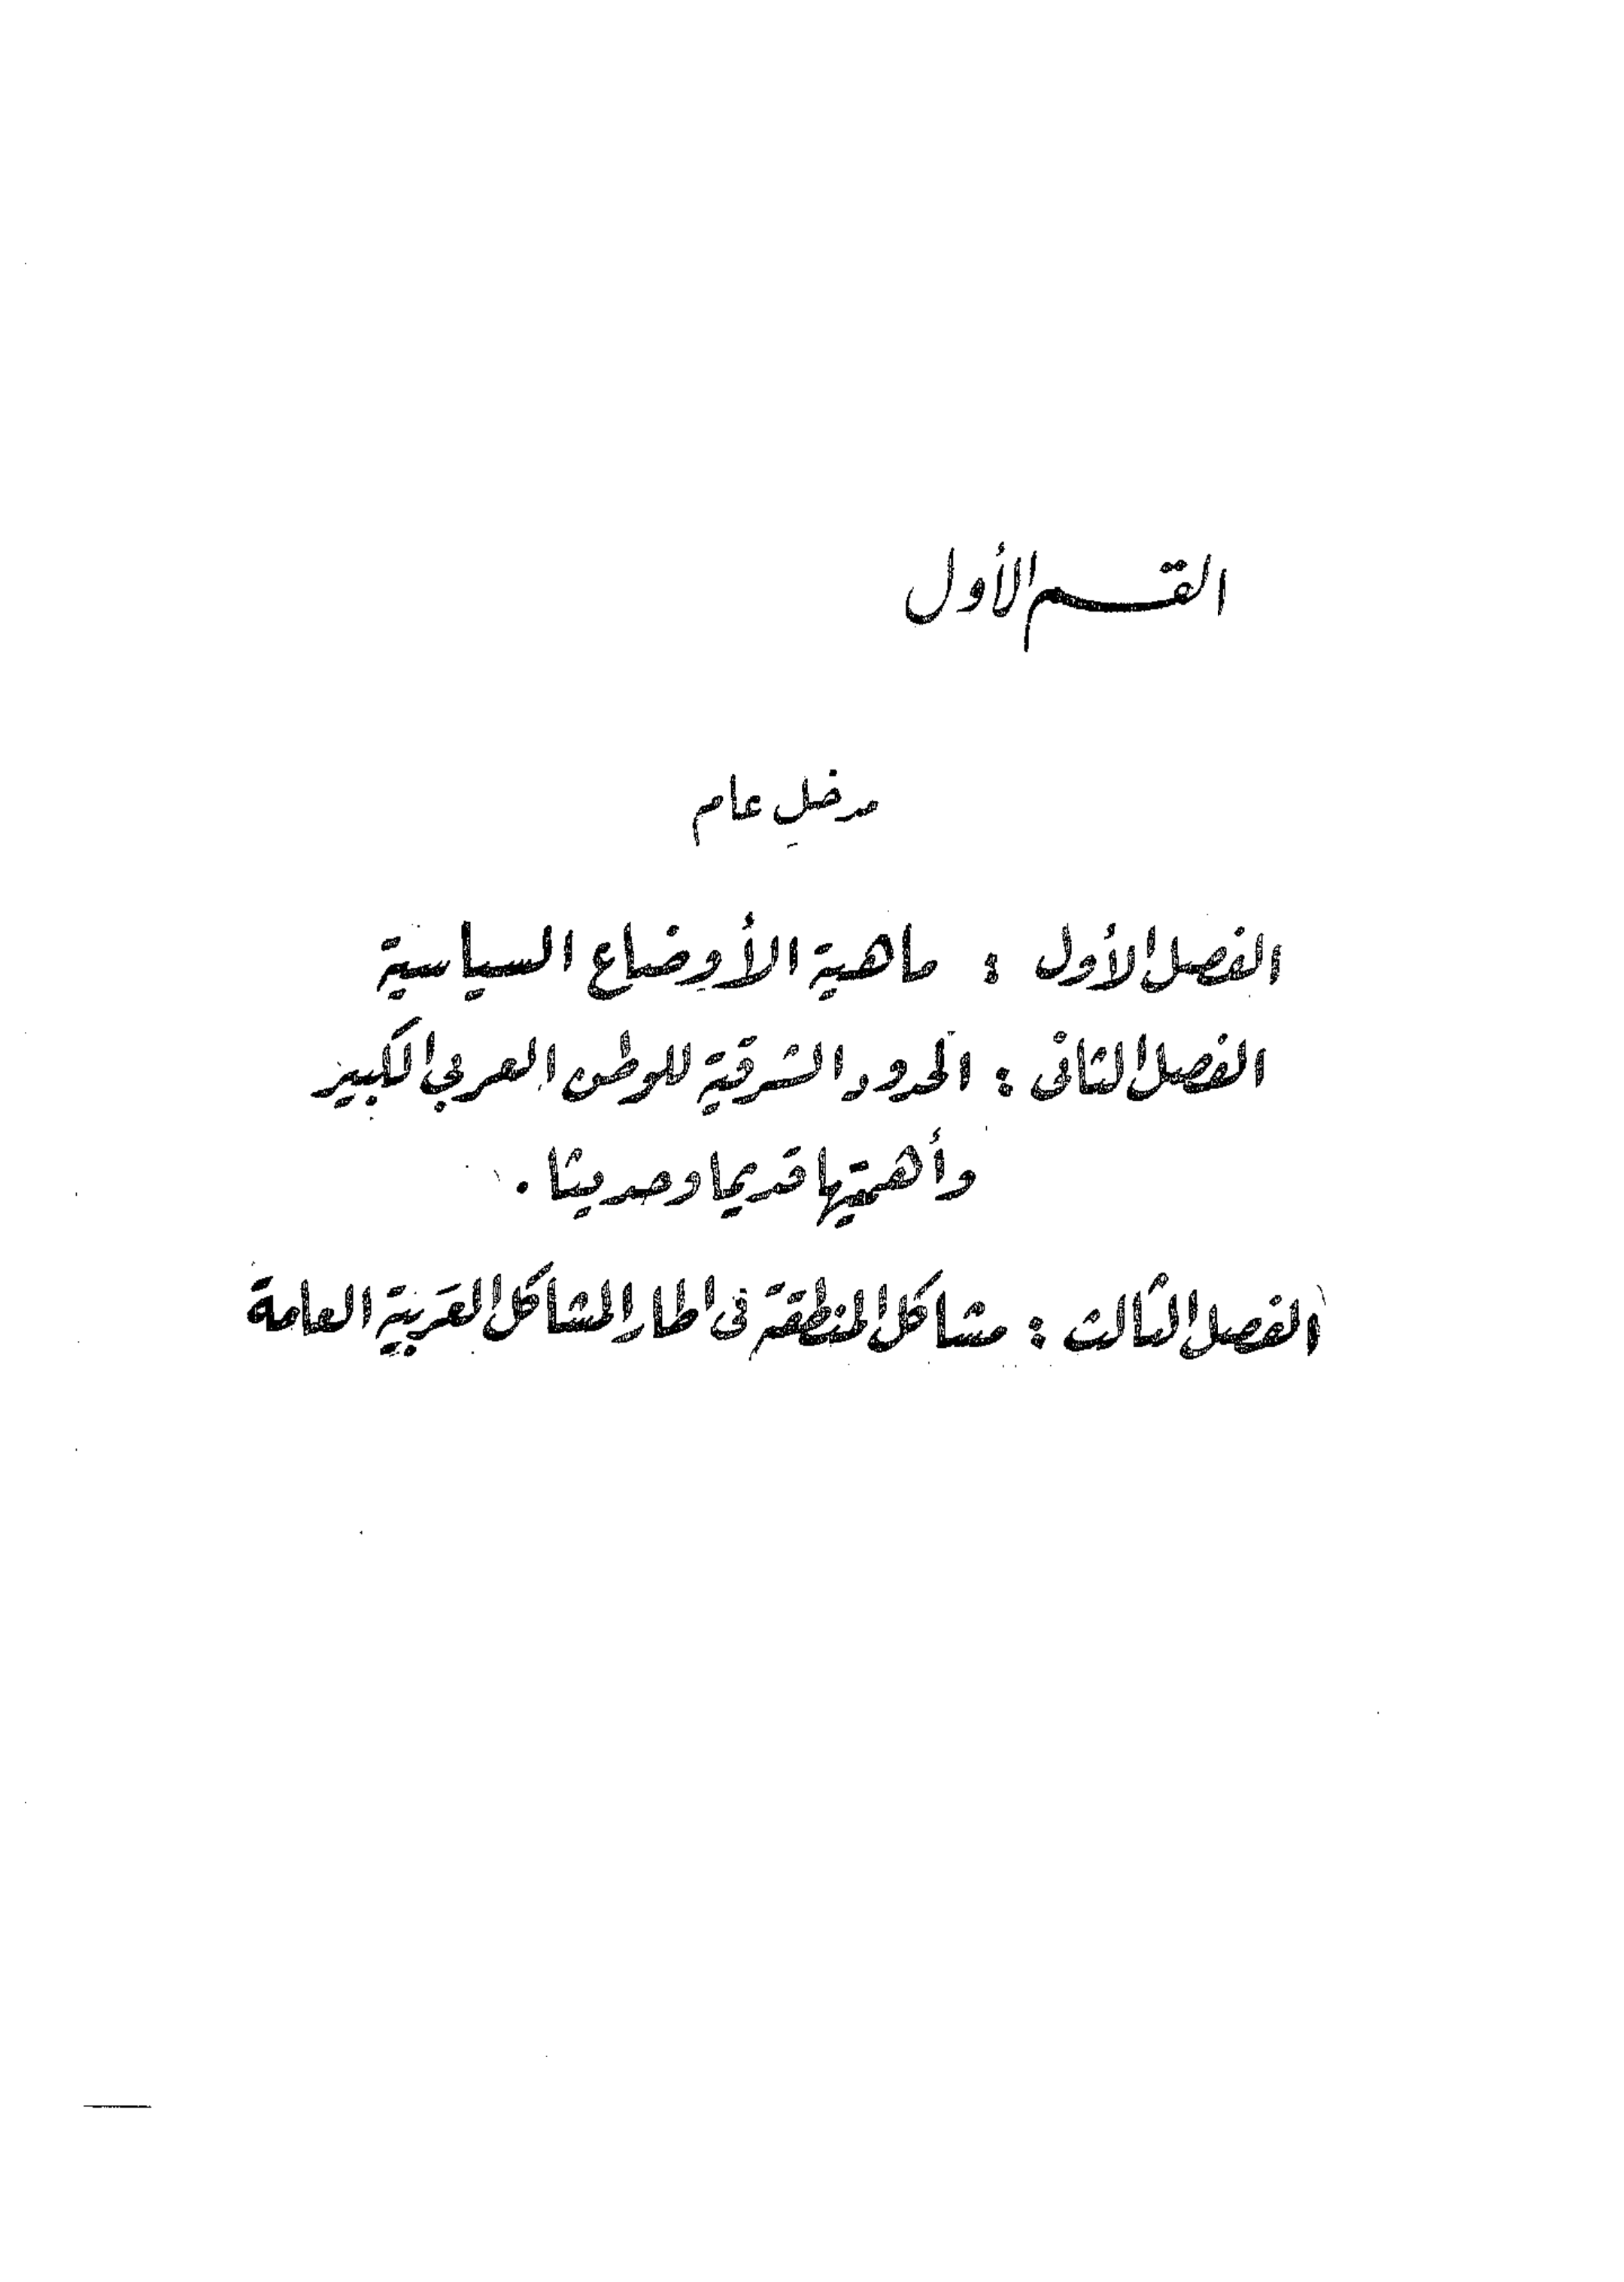 القسم الأول
مدخل عام
الفصل الأول : ماهية الأوضاع السياسية
الفصل الثانى : الحدود الشرقية للوطن العربي الكبير
وأهميتها قديما وحديثا .
الفصل الثالث : مشاكل المنطقة فى اطار المشاكل العربية العامة